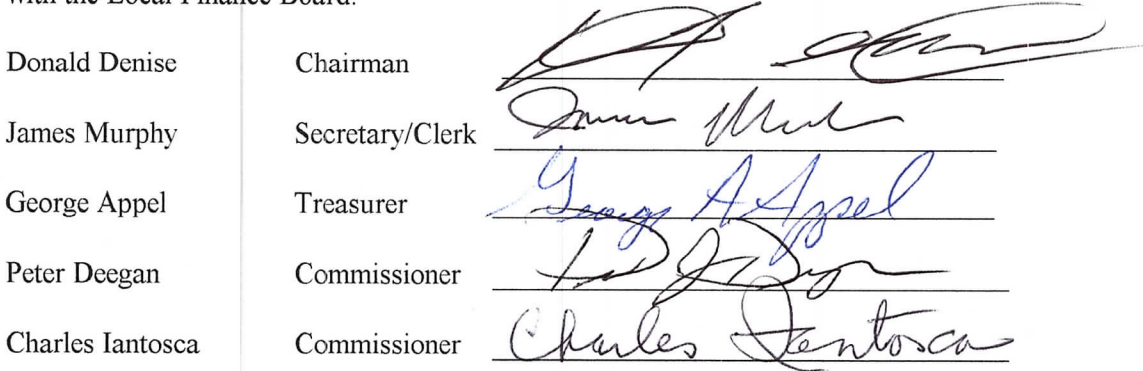 with the Local Finance Board.
Donald Denise Chairman
James Murphy Secretary/Clerk
George Appel Treasurer George A Appel
Peter Deegan Commissioner
Charles Iantosca Commissioner Charles Iantosca